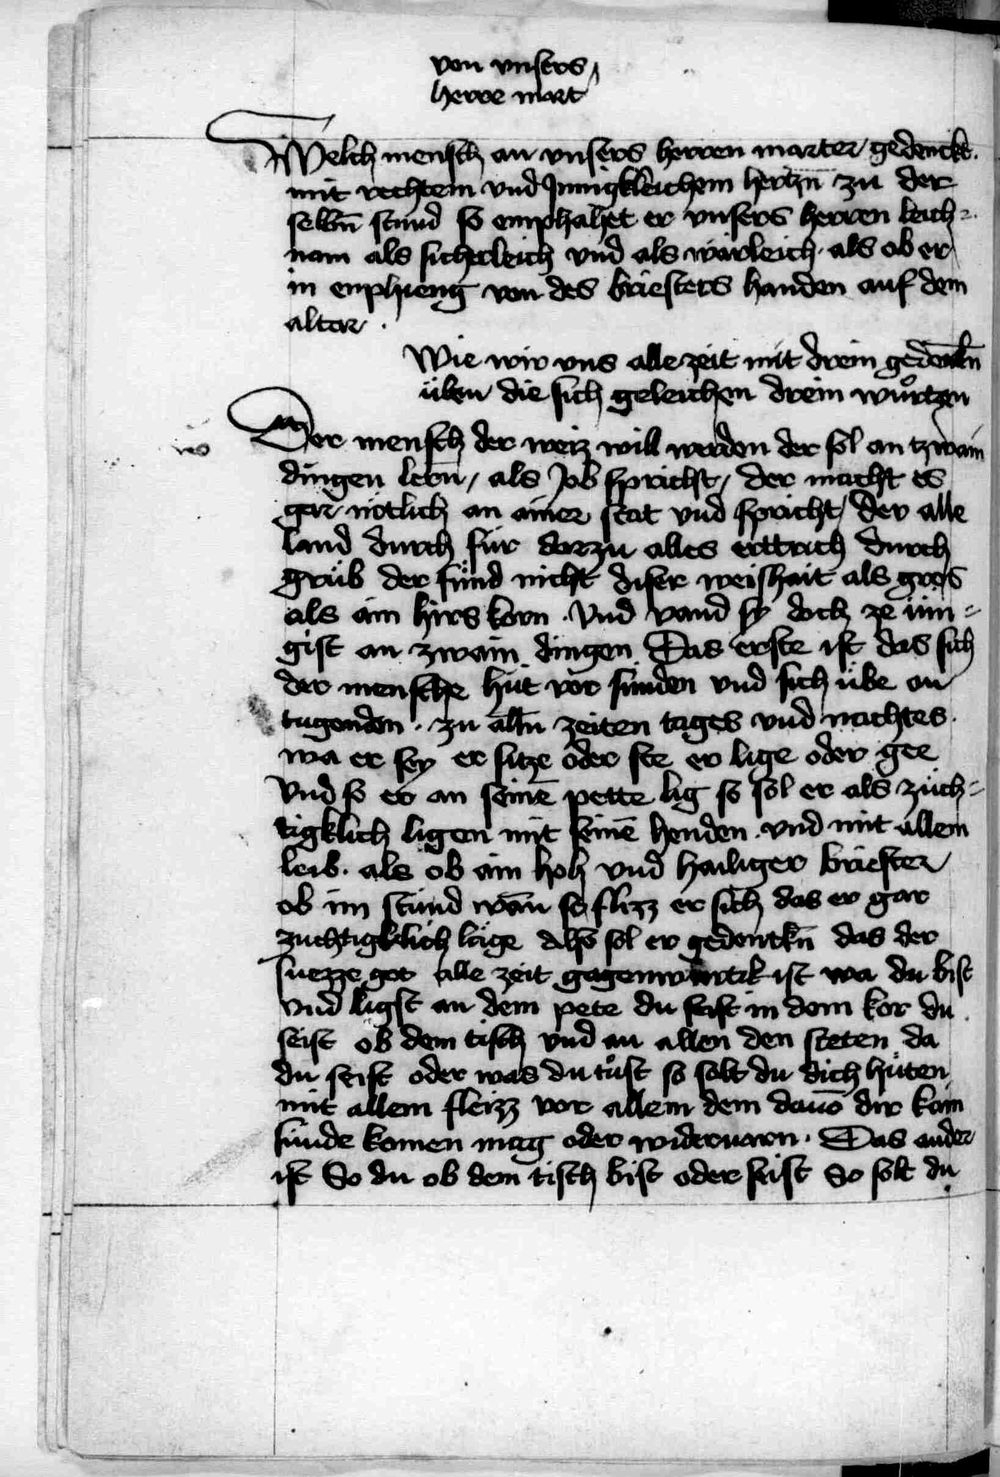 von vnsers
herre mart
Welch mensch an vnsers herren marter gedenckt.
mit rechtem vnd Jnnigkleichem hertzn̄ zu der
selbn̄ stund so emphahet er vnsers herren leich=
nam als sicherleich vnd als wärleich. als ob er
in enphieng von des briesters handen auf dem
alter.
Wie wir vns alle zeit mit drein gedenkn̄
üben die sich geleichen drein wuͦrtzen
Der mensch der weiz will werden der sol an tzwain
dingen lern̄, als Job spricht, der macht es
gar nötlich an ainer stat vnd spricht, Der alle
land durch für darzu alles erttrich durch
grüb der fünd nicht diser weishait als gros
als ain hirs korn. Vnd vand sy doch ze iun=
gist an zwain dingen Das erste ist das sich
der mensche hüt vor sunden vnd sich übe an
tugenden. zu alln̄ zeiten tages vnd nachtes.
wa er sey er sitze oder ste er lige oder gee
Vnd so er an seinē pette lig so sol er als züch=
tigklich ligen mit seinē henden. vnd mit allem
leib. als ob ain hoh vnd hailiger briester
ob im stünd wān so flizz er sich das er gar
zuchtigklich läge Also sol er gedenckn̄ das der
suezze got alle zeit gegenwurtik ist wa du bist
vnd ligst an dem pete du seist in dem kor du
seist ob dem tisch vnd an allen den steten da
du seist oder was du tuͦst so solt du dich hüten
mit allem fleizz vor allem dem dauō dir kain
sünde komen mag oder widervarn. Das ander
ist So du ob dem tisch bist oder seist So solt du